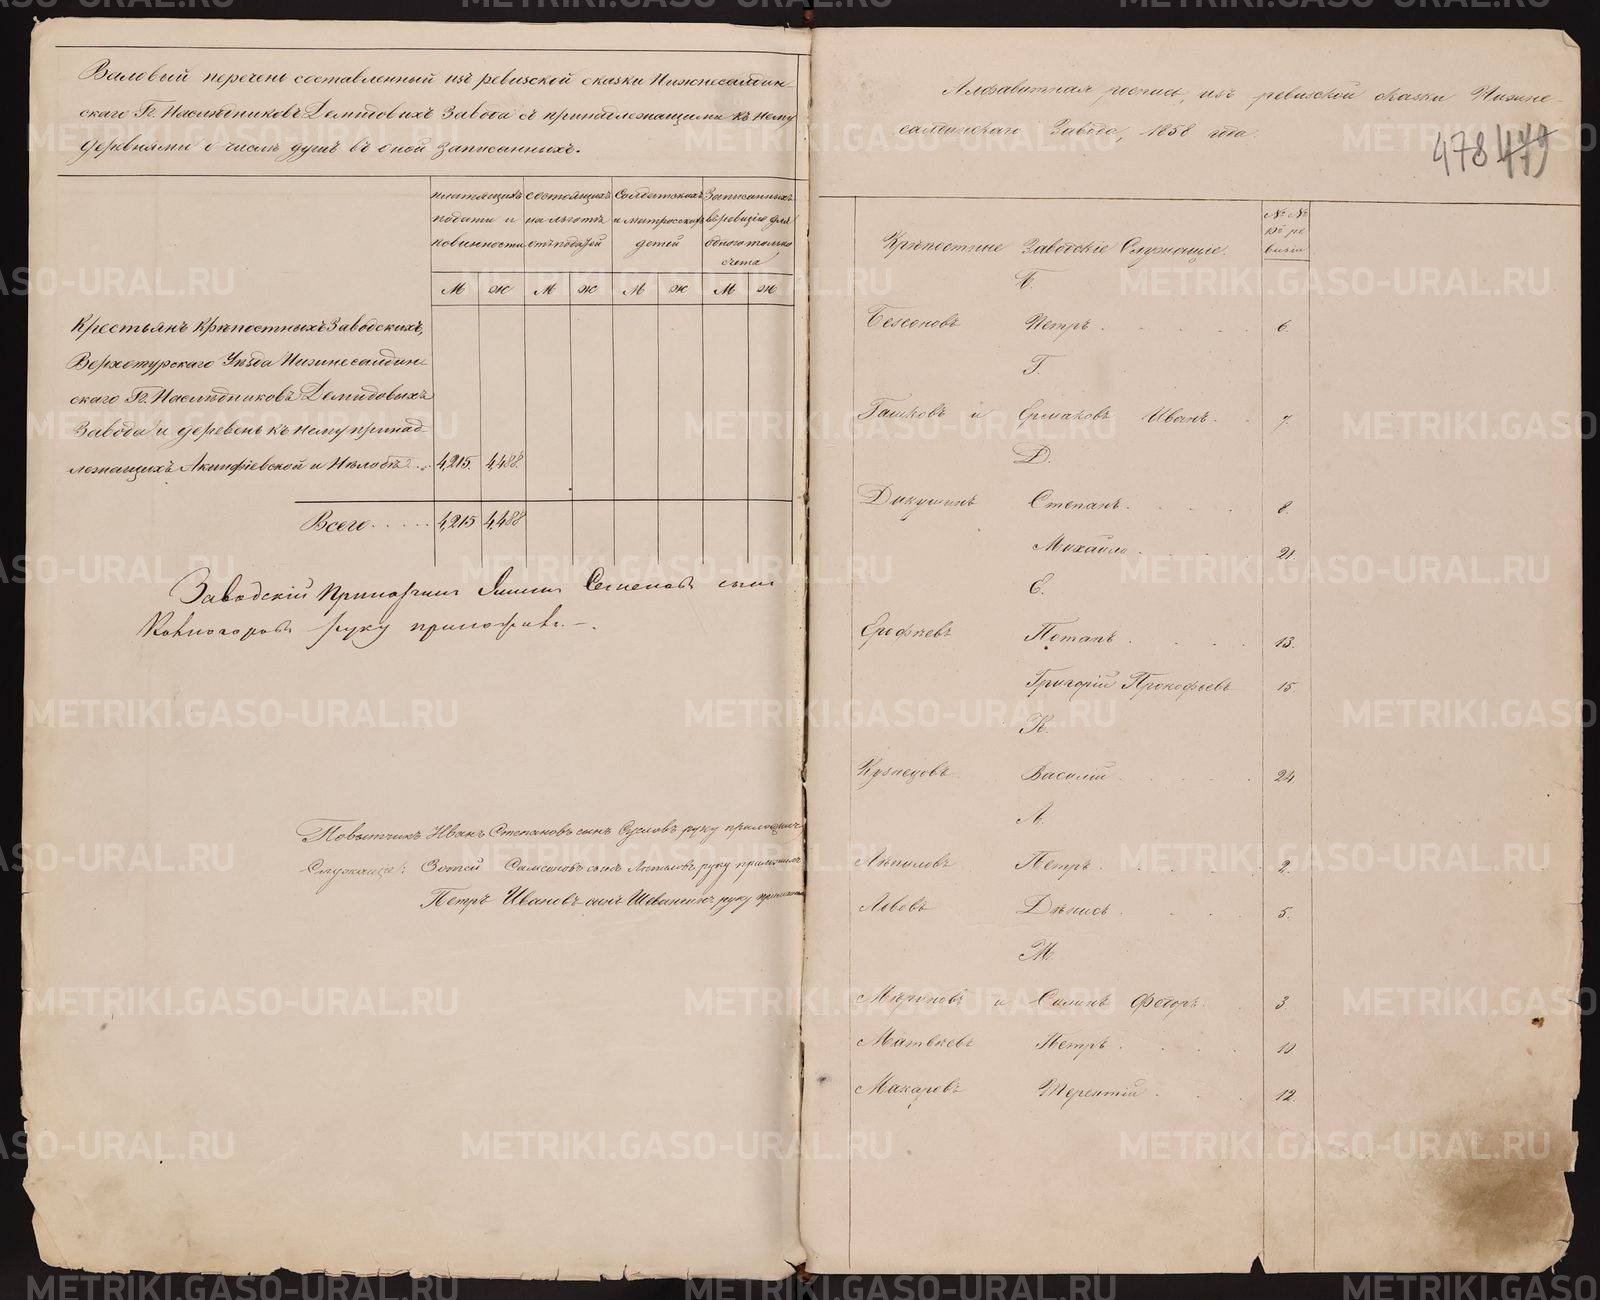 Валовый перечень составленный изъ ревизской сказки Нижнесалдин-
скаго Гг. Наслѣдниковъ Демидовыхъ Завода съ принадлежащими къ нему
деревнями о числѣ душъ въ оной записанныхъ.
платящихъ подати и повинности
состоящихъ на льготѣ отъ податей
Солдатскихъ и матросскихъ детей
Записанныхъ въ ревизію для одного только счета
М Ж М Ж М Ж М Ж
Крестьянъ Крѣпостныхъ Заводскихъ,
Верхотурскаго Уѣзда Нижнесалдин-
скаго Гг. Наслѣдниковъ Демидовыхъ
Завода и деревень къ нему принад-
лежащихъ Акинфіевской и Нелобы . . 4,215. 4,488.
Всего . . . . . 4,215 4,488
Заводскій Прикащикъ Семеновъ сынъ
руку приложилъ. –
Повытчикъ Иванъ Степановъ сынъ Сусловъ руку приложилъ
Служащіе: Зотей Самсоновъ сынъ руку приложилъ
Петръ Ивановъ сынъ руку приложилъ
Алфавитная роспись, изъ ревизской сказки Нижне-
салдинскаго Завода, 1858 года.
478 479
Крѣпостные Заводскіе Служащіе.
№ № 10й ревизіи
Б.
Бессоновъ Петръ . . . . 6.
Г.
Гашковъ и Ермаковъ Иванъ . . 7.
Д.
Дикушинъ Степанъ . . . . 8.
Михайло . . . . 21.
Е.
Ерофѣевъ Потапъ . . . . 13.
Григорій Прокофьевъ 15.
К.
Кузнецовъ Василій . . . . 24.
Л.
Лѣпиловъ Петръ . . . . 2.
Львовъ Дѣнисъ . . . . 5.
М.
Мѣриновъ и Салинъ Федоръ . 3.
Матвѣевъ Петръ . . . . 10
Макаровъ Терентій . . . 12.
METRIKI.GASO-URAL.RU